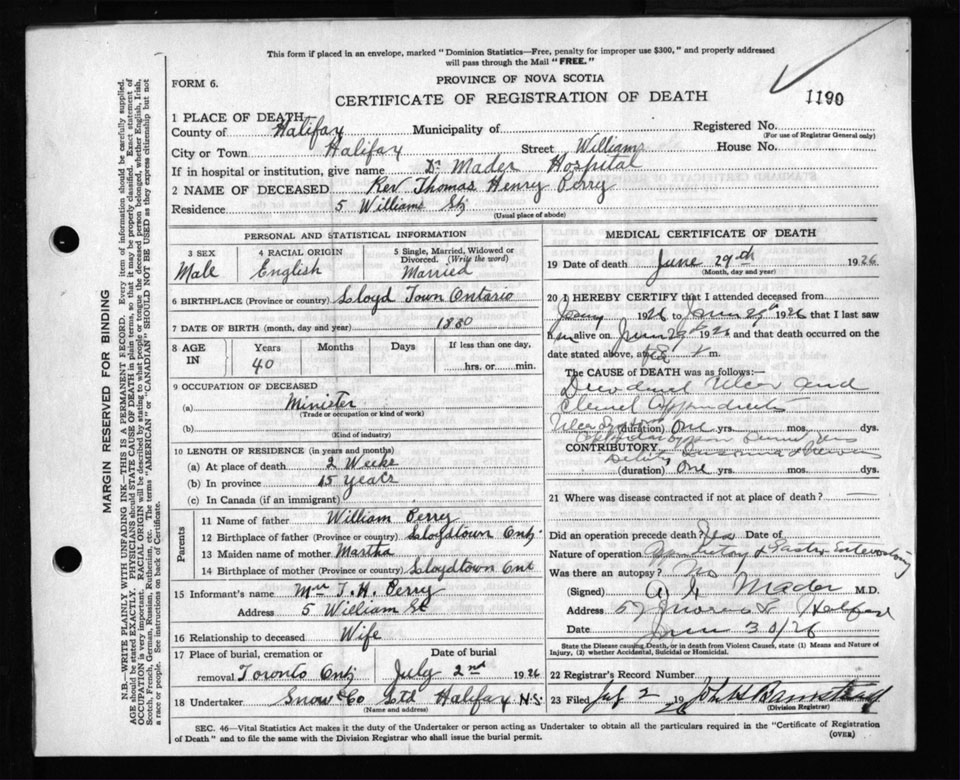 This form if placed in an envelope, marked "Dominion Statistics—Free, penalty for improper use $300," and properly addressed
will pass through the Mail "FREE."
FORM 6.
PROVINCE OF NOVA SCOTIA
CERTIFICATE OF REGISTRATION OF DEATH
1190
1 PLACE OF DEATH
County of Halifax Municipality of Registered No.
(For use of Registrar General only)
City or Town Halifax Street Williams House No.
If in hospital or institution, give name Dr Mader Hospital
2 NAME OF DECEASED Rev Thomas Henry Perry
Residence 5 Williams St
(Usual place of abode)
PERSONAL AND STATISTICAL INFORMATION
3 SEX Male
4 RACIAL ORIGIN English
5 Single, Married, Widowed or Divorced. (Write the word) Married
6 BIRTHPLACE (Province or country) Lloyd Town Ontario
7 DATE OF BIRTH (month, day and year) 1880
8 AGE IN Years Months Days If less than one day,
40 hrs. or min.
9 OCCUPATION OF DECEASED
(a) Minister
(Trade or occupation or kind of work)
(b)
(Kind of industry)
10 LENGTH OF RESIDENCE (in years and months)
(a) At place of death 2 Weeks
(b) In province 15 years
(c) In Canada (if an immigrant)
Parents
11 Name of father William Perry
12 Birthplace of father (Province or country) Lloydtown Ont
13 Maiden name of mother Martha
14 Birthplace of mother (Province or country) Lloydtown Ont
15 Informant's name Mrs T. H. Perry
Address 5 William St
16 Relationship to deceased Wife
17 Place of burial, cremation or removal Toronto Ont
Date of burial July 2nd 1926
18 Undertaker Snow & Co Ltd Halifax N.S.
(Name and address)
MEDICAL CERTIFICATE OF DEATH
19 Date of death June 29th 1926
(Month, day and year)
20 I HEREBY CERTIFY that I attended deceased from
1926 to June 29th 1926 that I last saw
him alive on June 29th 192 and that death occurred on
date stated above, at m.
The CAUSE OF DEATH was as follows:
Duodenal Ulcer and
Appendicitis
(duration) One yrs. mos. dys.
CONTRIBUTORY
(duration) One yrs. mos. dys.
21 Where was disease contracted if not at place of death?
Did an operation precede death? Yes
Nature of operation
Was there an autopsy? No
(Signed) Mader M.D.
Address 57 Halifax
Date June 30/26
State the Disease causing Death, or in death from Violent Causes, state (1) Means and Nature of
Injury, (2) whether Accidental, Suicidal or Homicidal.
22 Registrar's Record Number
23 Filed July 2 19
(Division Registrar)
SEC. 46—Vital Statistics Act makes it the duty of the Undertaker or person acting as Undertaker to obtain all the particulars required in the "Certificate of Registration
of Death" and to file the same with the Division Registrar who shall issue the burial permit.
(OVER)
MARGIN RESERVED FOR BINDING
N.B.—WRITE PLAINLY WITH UNFADING INK—THIS IS A PERMANENT RECORD. Every item of information should be carefully supplied.
AGE should be stated EXACTLY. PHYSICIANS should STATE CAUSE OF DEATH in plain terms, so that it may be properly classified. Exact statement of
OCCUPATION is very important. RACIAL ORIGIN will be described by stating to what people or tongue the deceased person belonged, whether English, Irish,
Scotch, French, German, Russian, Ruthenian, etc. The terms "AMERICAN" or "CANADIAN" SHOULD NOT BE USED as they express citizenship but not
a race or people. See instructions on back of Certificate.